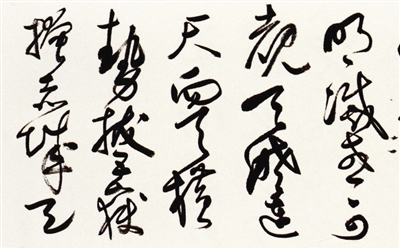 明滅或可
覩天姥連
天向天橫
勢拔五嶽
掩赤城天